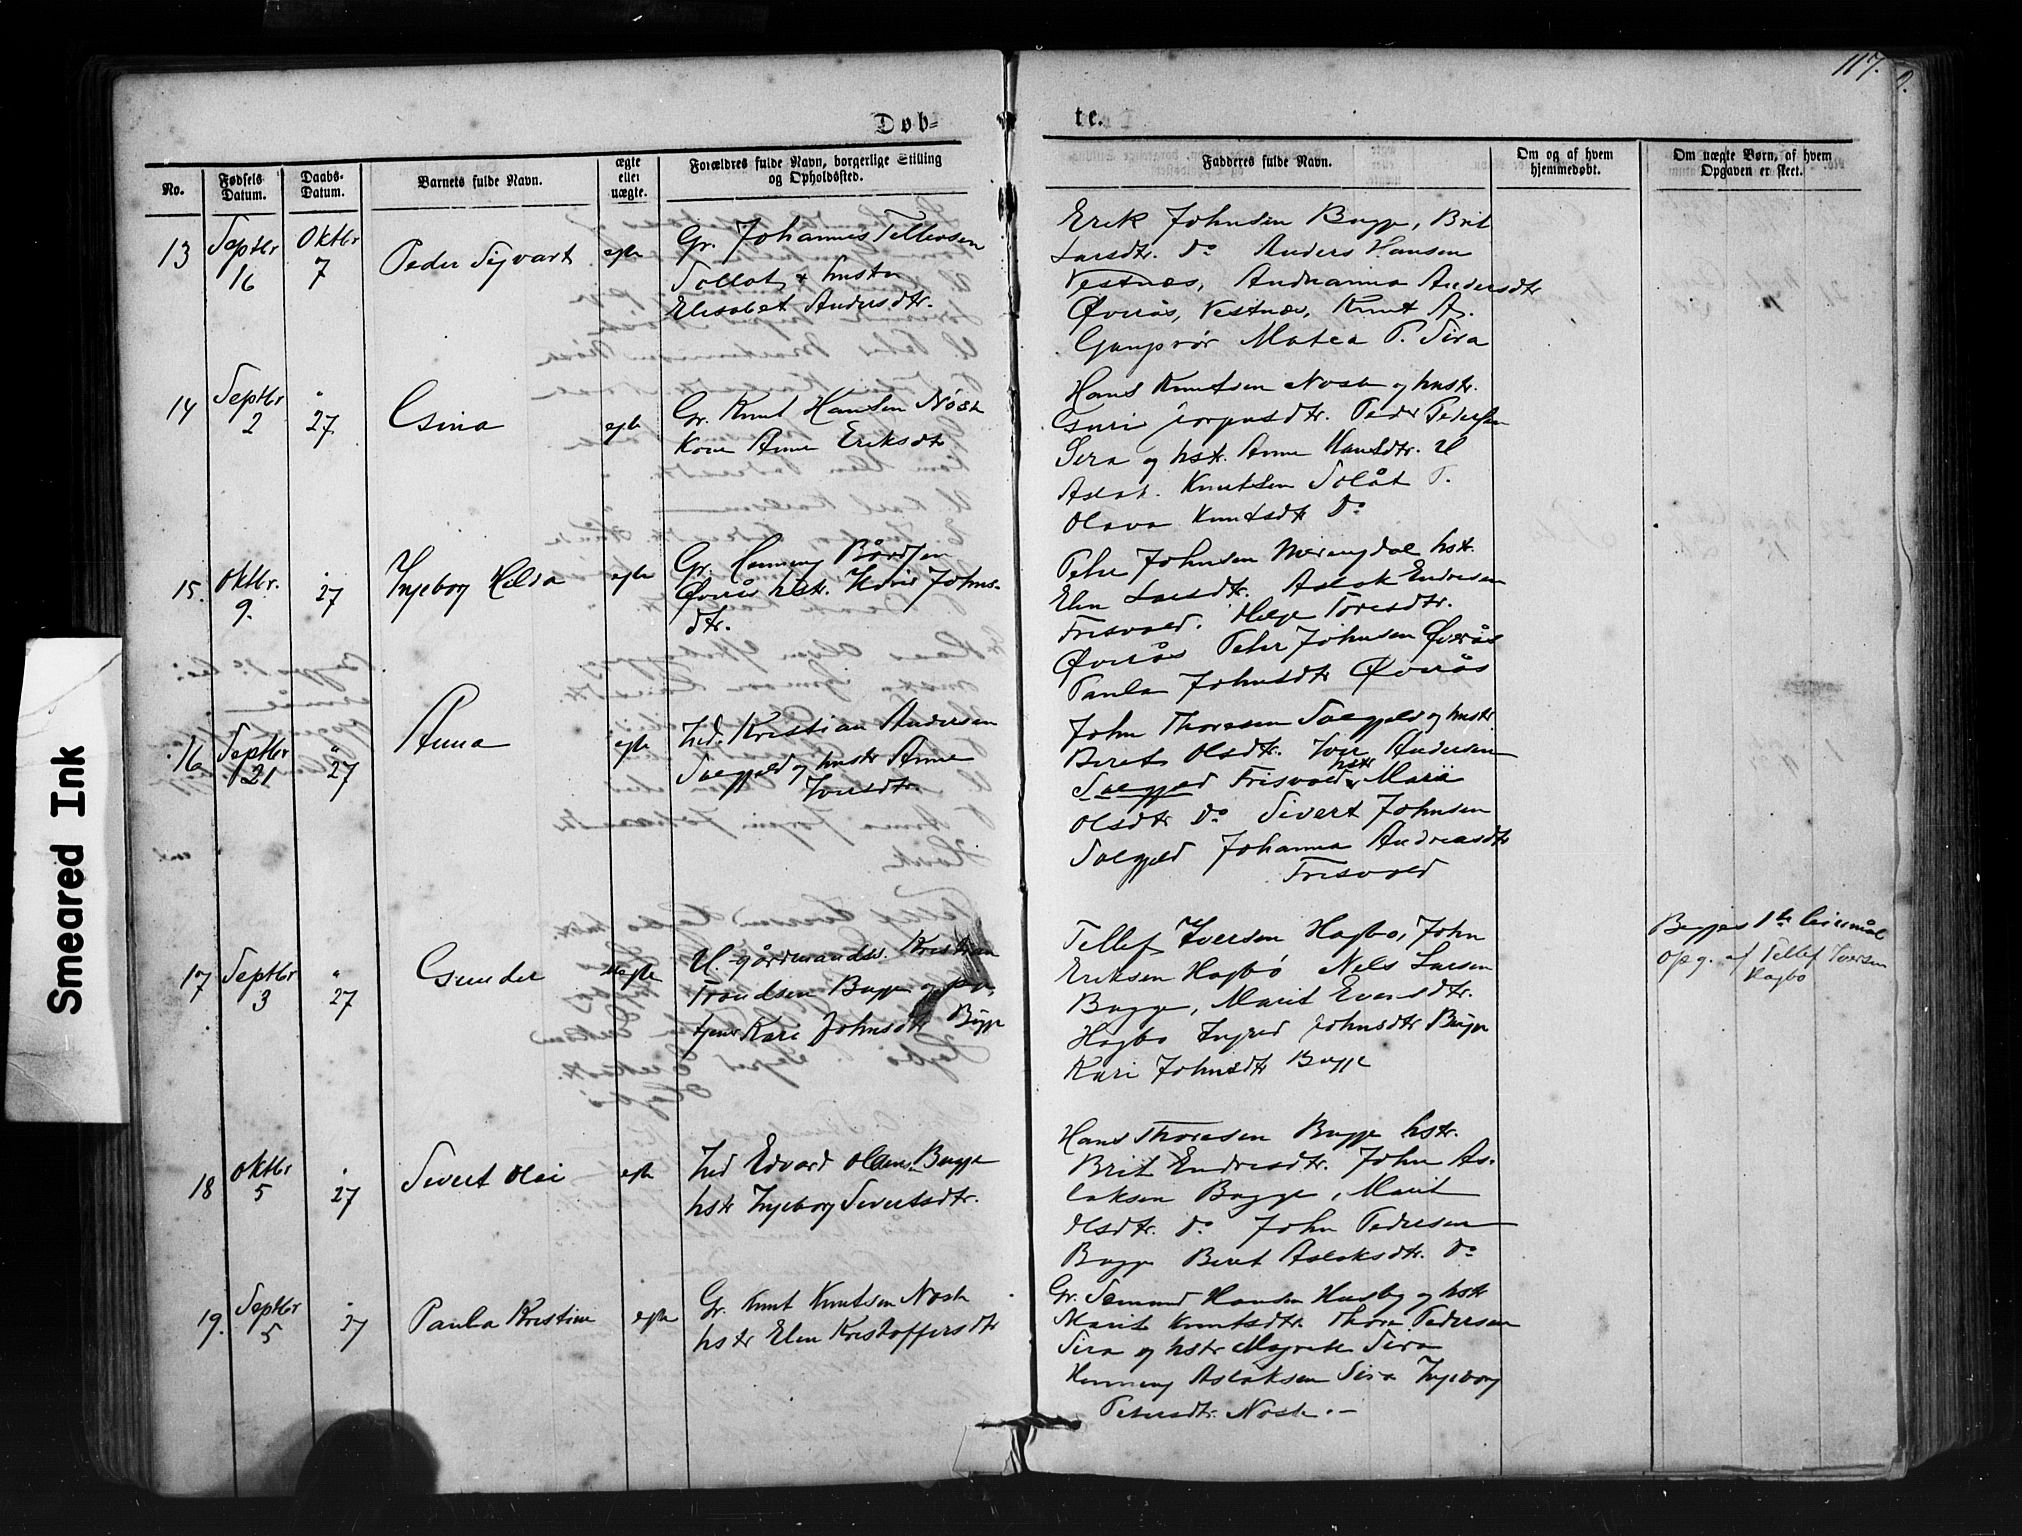 117.
Døb=
te.
No.
Fødsels Datum.
Daabs- Datum.
Barnets fulde Navn.
ægte eller uægte.
Forældres fulde Navn, borgerlige Stilling og Opholdssted.
Fadderes fulde Navn.
Om og af hvem hjemmedøbt.
Om uægte Børn, af hvem Opgaven er skeet.
13 Septbr 16 Oktbr 7 Peder Sigvart egte
Gr. Johannes Tellefsen
Sollot & hustru
Elisabet Andersdtr.
Erik Johnsen Bugge, Brit
Larsdtr. do Anders Hansen
Vestnæs, Andrianna Andersdtr
Øverås, Vestnæs, Knut A.
Gangstør Matea P. Sira
14 Septbr 2 " 27. Gina egte
Gr. Knut Hansen Nöste
Kone Anne Eriksdtr
Hans Knutsen Nöste og hustr.
Guri Torgusdtr. Peder Pedersen
Sira og hstr. Anne Hansdtr. U
Aslak Knutsen Solåt P.
Olava Knutsdtr do
15. Oktbr. 9. " 27 Ingeborg Hilda egte
Gr. Henning Bårdsen
Øverås hstr. Johns-
dtr.
Peter Johnsen Meringdal hstr.
Elen Larsdtr. Aslak Endresen
Frisvold. Helge Toresdtr.
Øverås Peter Johnsen Øverås
Paula Johnsdtr Øverås
16 Septbr 21 " 27 Anna egte
Ind. Kristian Andersen
Solgjeld og hustr Anne
Iversdtr.
John Thoresen Solgjeld og hustr
Beret Olsdtr. Iver Andersen
Solgjeld Frisvold hstr Marit
Olsdtr do Sivert Johnsen
Solgjeld Johanna Andreasdtr
Frisvold
17 Septbr 3 " 27 Gunder uegte
U. gårdmands. Kristian
Trondsen Bugge og
tjener Kari Johnsdtr Bugge
Tellef Iversen Hagbø, John
Eriksen Hagbö Nils Larsen
Bugge, Marit Evensdtr.
Hagbø Ingrid Johnsdtr Bugge
Kari Johnsdtr Bugge
Begges 1ste leiermål
opg. af Tellef Iversen
Hagbø
18 Oktbr 5 " 27 Sivert Olai egte
Ind Edvard Olsen Bugge
hstr Ingeborg Sivertsdtr.
Hans Thoresen Bugge hstr.
Brit Endresdtr. John As-
laksen Bugge, Marit
Olsdtr. do John Pedersen
Bugge Beret Aslaksdtr. do
19. Septbr 5 " 27 Paula Kristine egte
Gr. Knut Knutsen Nöste
hstr Elen Kristoffersdtr
Gr. Semund Hansen Husby og hstr
Marit Knutsdtr. Thore Pedersen
Sira og hstr Magrete Sira
Henning Aslaksen Sira Ingeborg
Petersdtr. Nöste. –
Smeared Ink